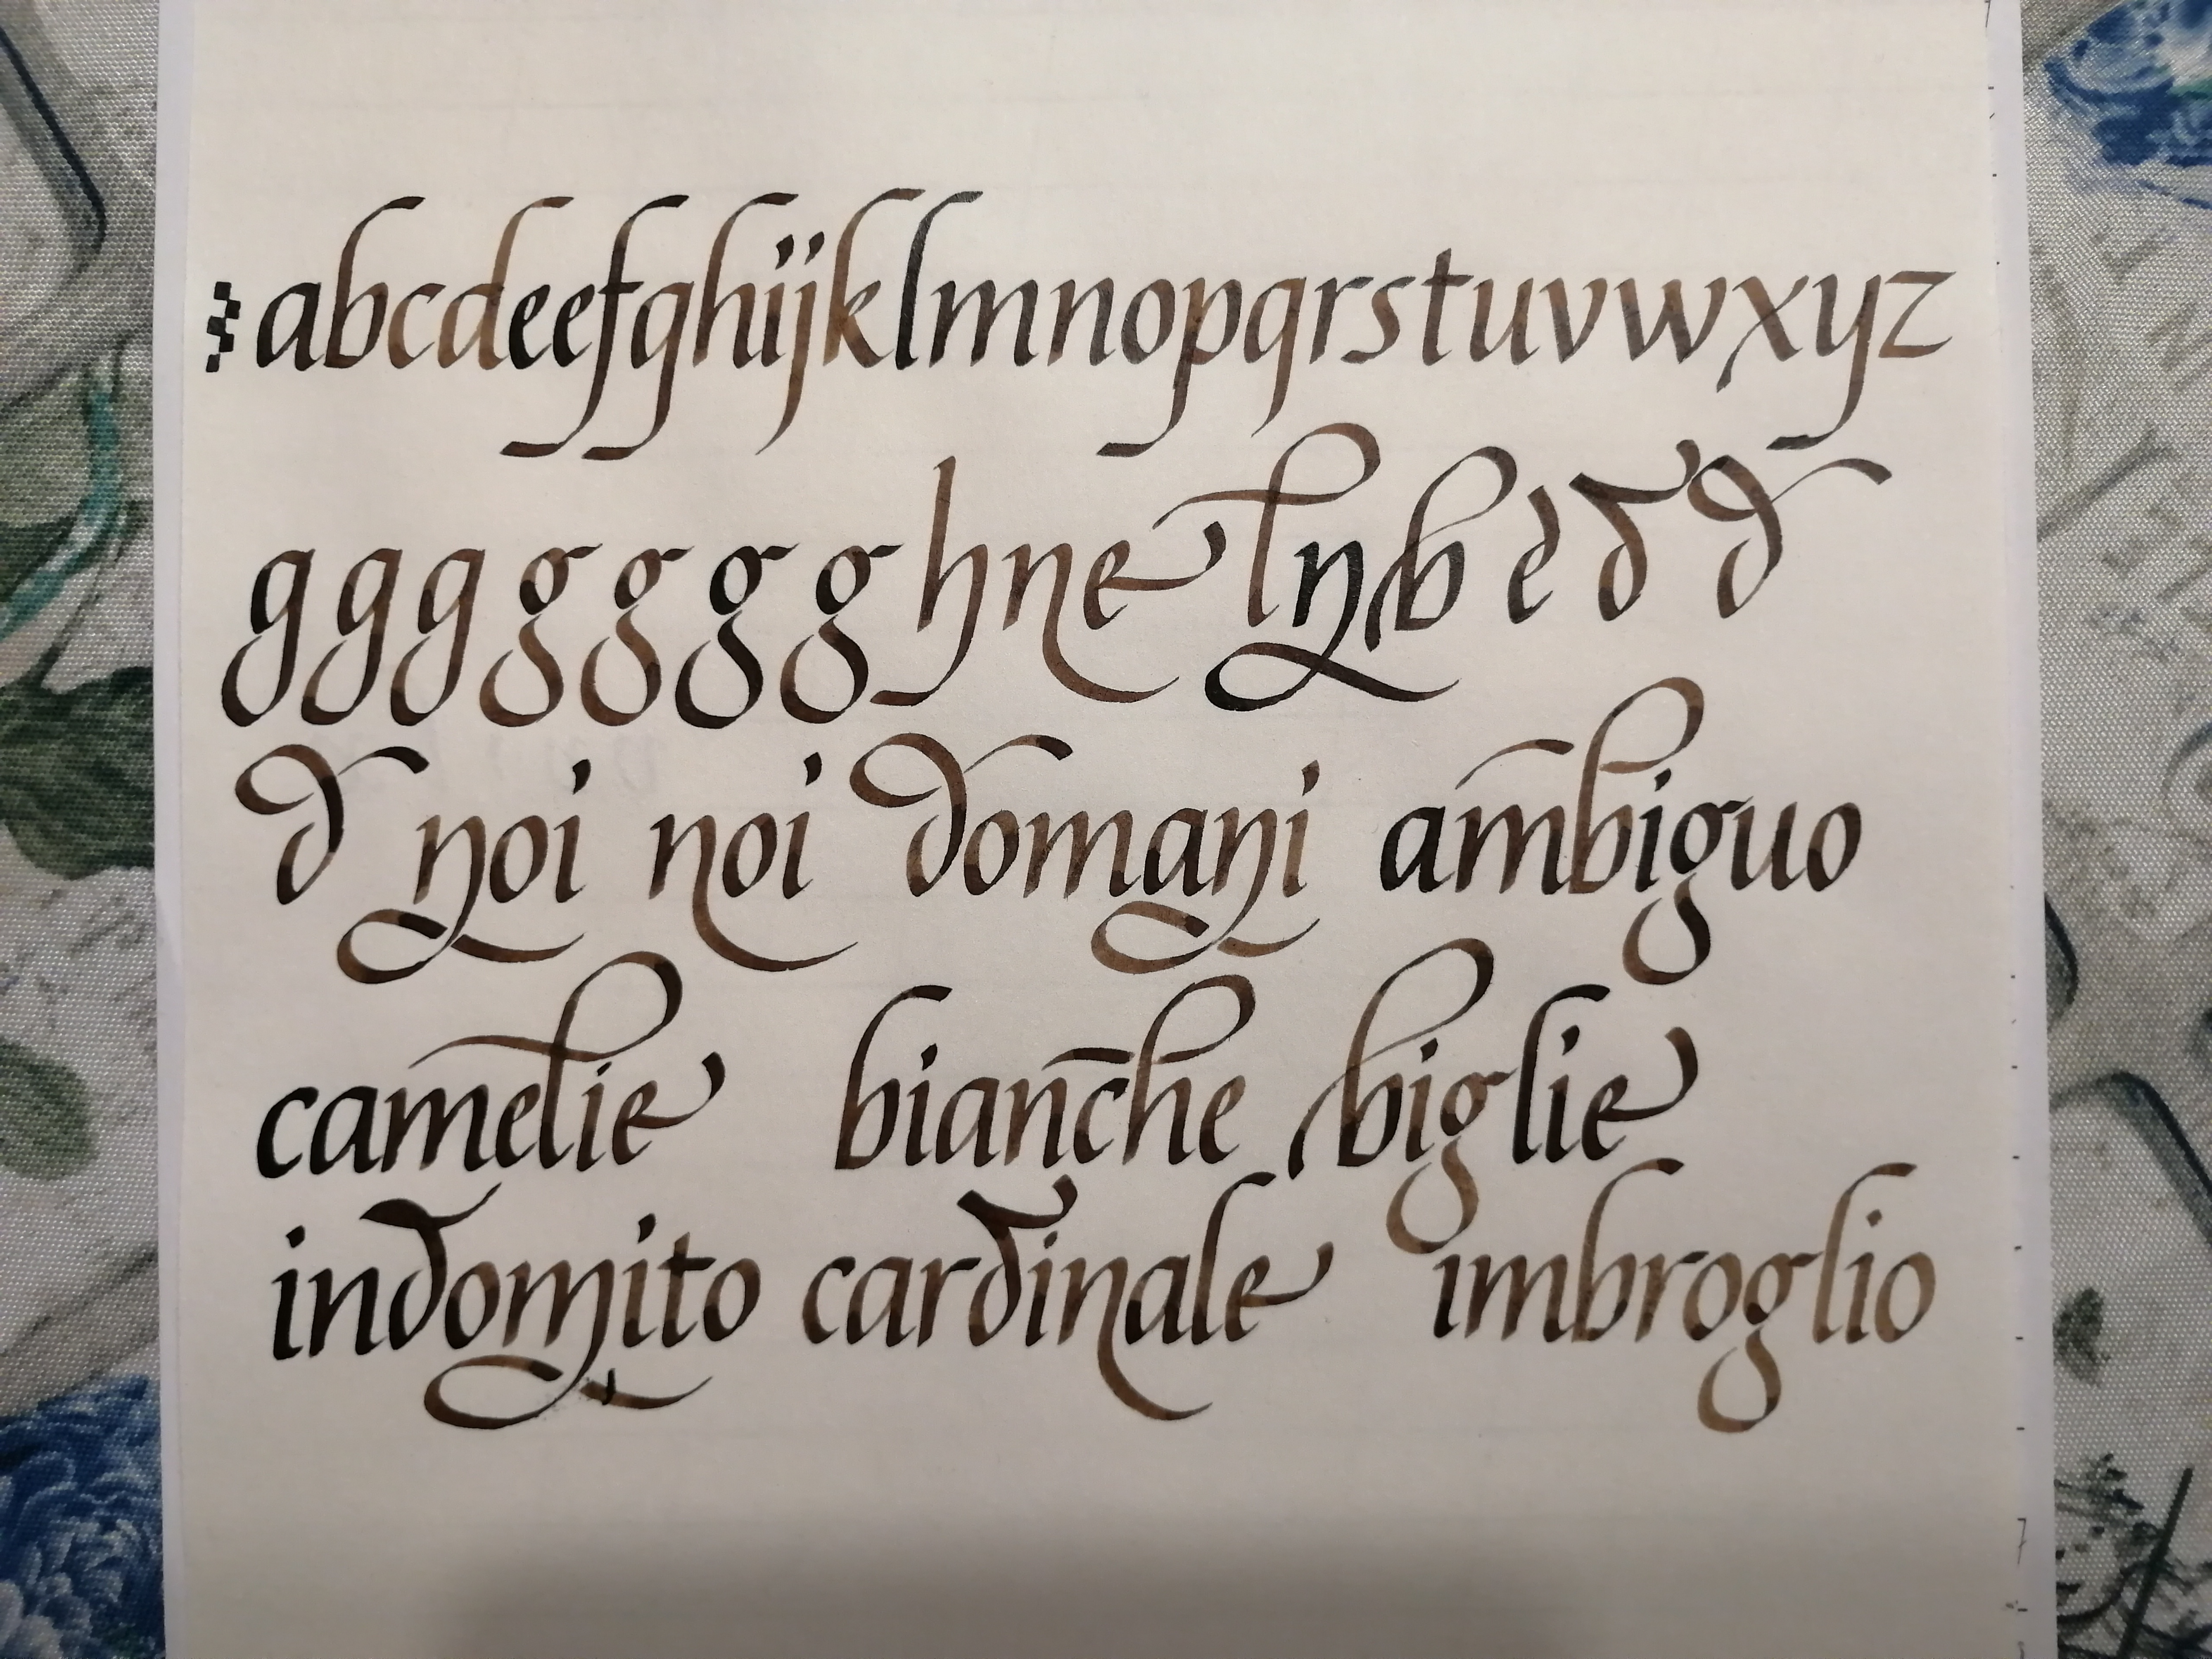 abcdeefghijklmnopqrstuvwxyz
g g g g g g g h n e l n b e d d
d noi noi domani ambiguo
camelie bianche biglie
indomito cardinale imbroglio